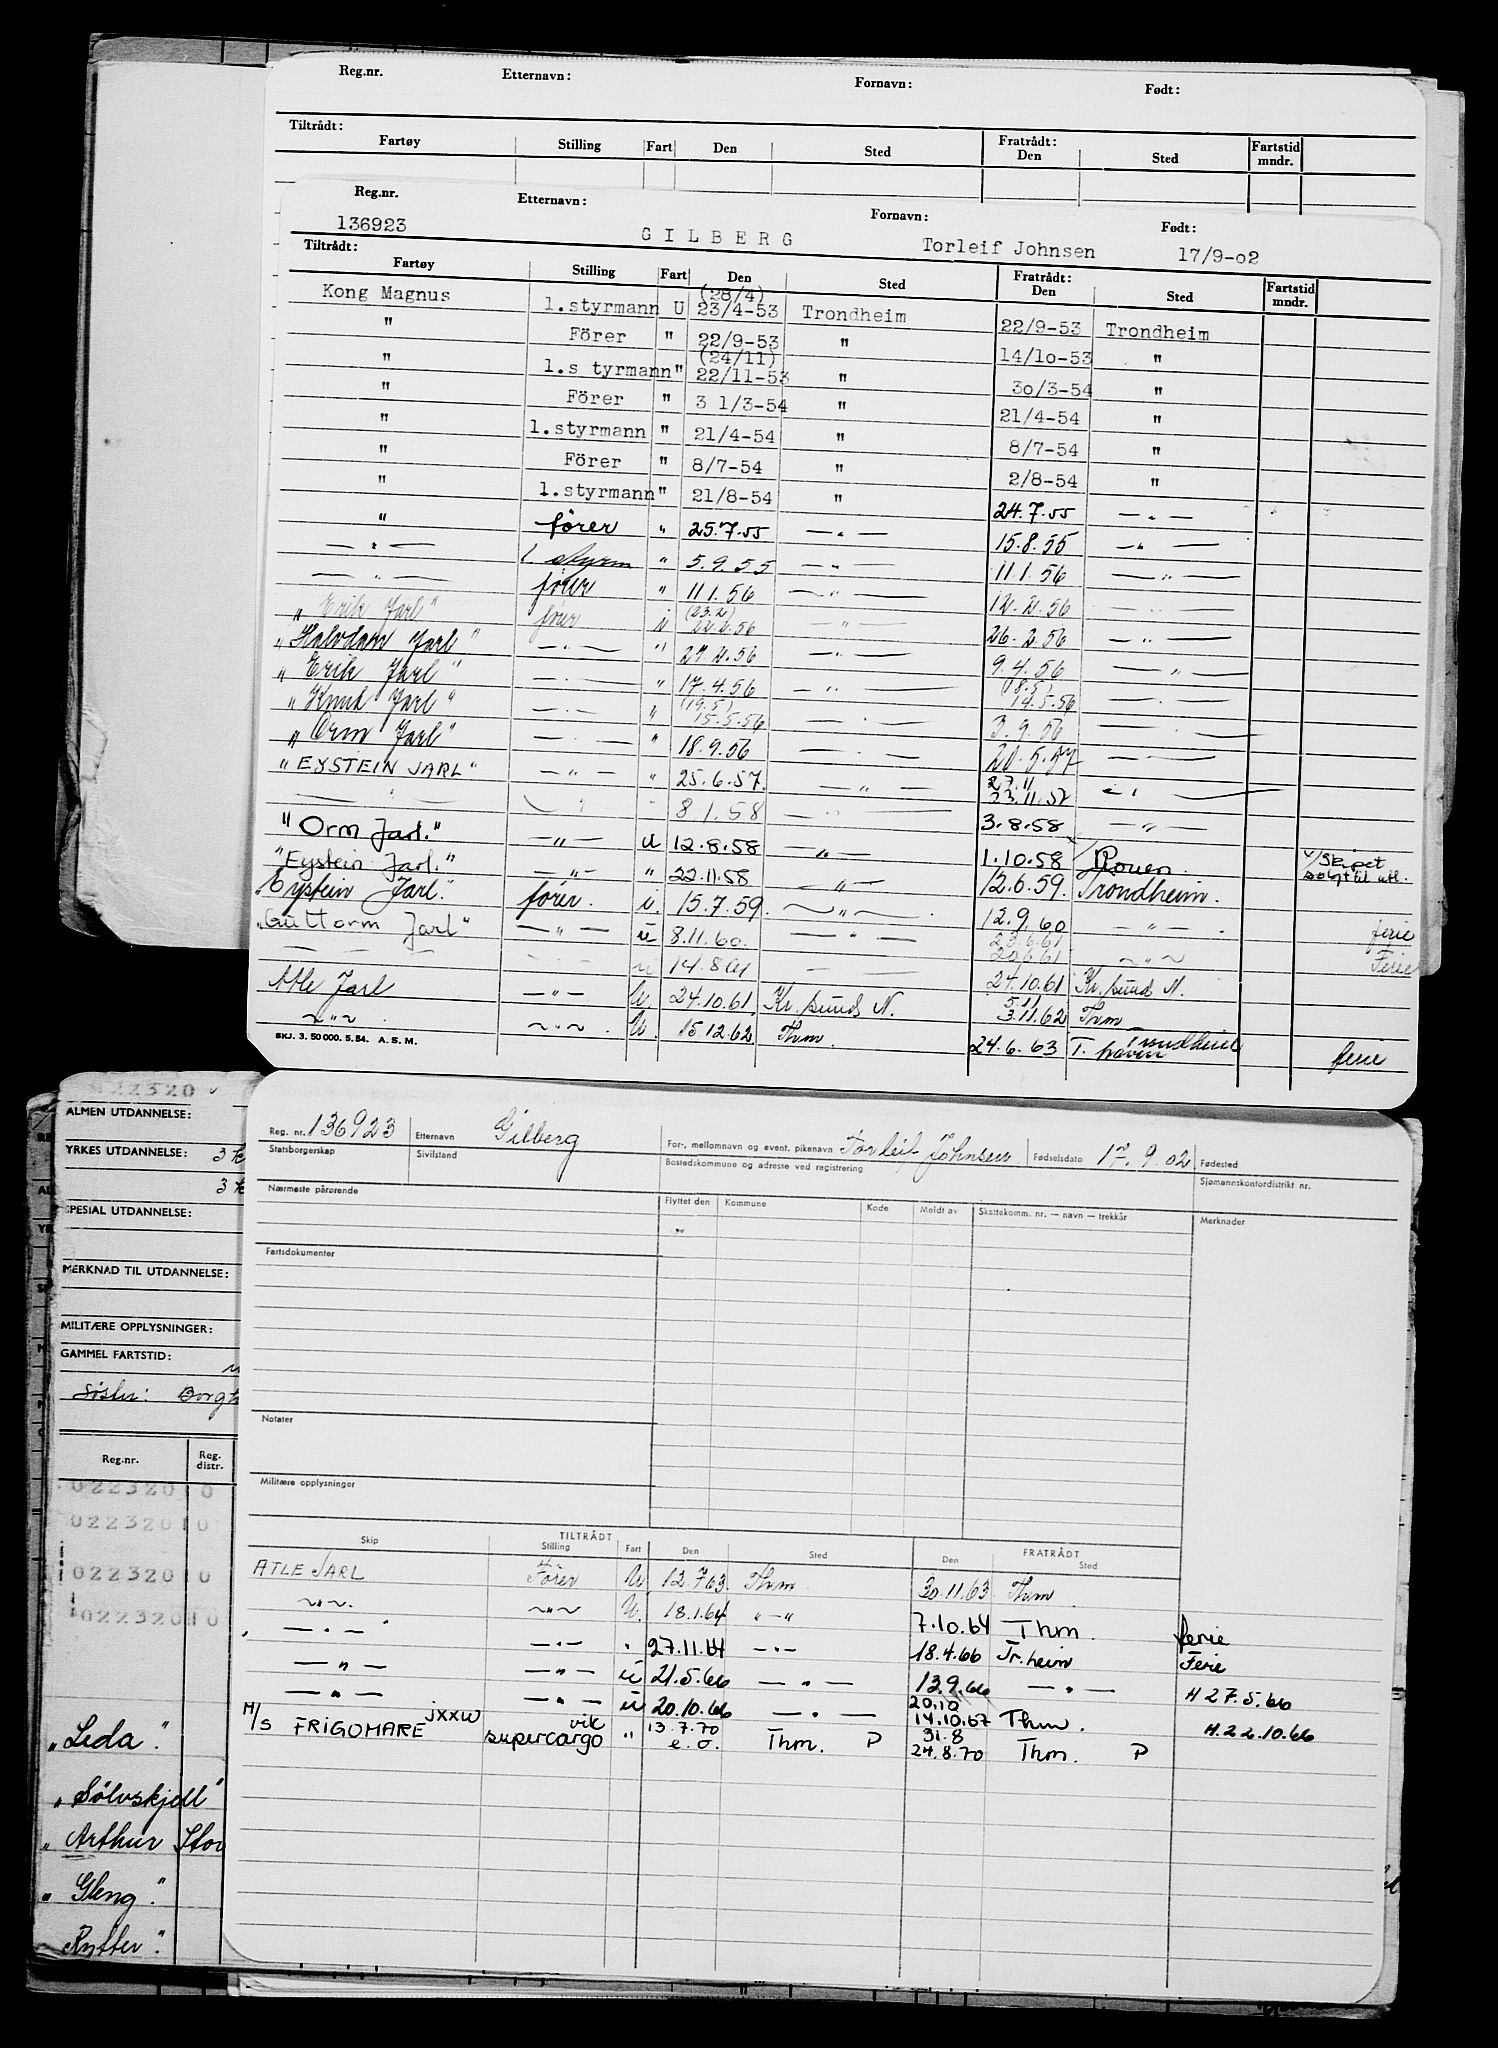 Reg.nr. Etternavn: Fornavn: Født:
Tiltrådt: Fratrådt: Fartstid
Fartøy Stilling Fart Den Sted Den Sted mndr.
Reg.nr. Etternavn: Fornavn: Født:
136923 G I L B E R G Torleif Johnsen 17/9-o2
Tiltrådt: Fratrådt: Fartstid
Fartøy Stilling Fart Den Sted Den Sted mndr.
Kong Magnus 1.styrmann U (28/4) 23/4-53 Trondheim 22/9-53 Trondheim
" Förer " 22/9-53 " 14/1o-53 "
" 1.s tyrmann " (24/11) 22/11-53 " 3o/3-54 "
" Förer " 3 1/3-54 " 21/4-54 "
" 1.styrmann " 21/4-54 " 8/7-54 "
" Förer " 8/7-54 " 2/8-54 "
" 1.styrmann " 21/8-54 " 24.7.55 — " —
" förer " 25.7.55 — " — 15.8.55 — " —
— " — 1. styrm " 5.9.55 — " — 11.1.56 — " —
— " — förer " 11.1.56 — " — 12.2.56
"Erik Jarl" förer i (23.2) 22.2.56 — " — 26.2.56 — " —
"Halvdan Jarl" — " — " 27.2.56 — " — 9.4.56 — " —
"Erik Jarl" — " — " 17.4.56 — " — (18.5) 14.5.56 — " —
"Knut Jarl" — " — " (19.5) 15.5.56 — " — 3.9.56 — " —
"Orm Jarl" — " — " 18.9.56 — " — 20.5.57 — " —
"EYSTEIN JARL" — " — " 25.6.57. — " — 27.11 23.11.57 — " —
— " — — " — " 8.1.58 3.8.58 — " —
"Orm Jarl." — " — u 12.8.58 — " — 1.10.58 Rouen. v/skipet solgt til utl.
"Eystein Jarl." — " — " 22.11.58 — " — 12.6.59. Trondheim.
Eystein Jarl." förer. i. 15.7.59. — " — 12.9.60 — " — . ferie
"Guttorm Jarl" — " — u 8.11.60. — " — 23.6.61 20.6.61 — " — Ferie
— — — " — u 14.8.61 — — 24.10.61 Kr.sund N.
Atle Jarl — " — U. 24.10.61. Kr.sund N. 5.11 3.11.62 Thm
— " — . — " — . U. 15.12.62 Thm. 24.6.63 T. haven Trondheim ferie
SKJ. 3. 50 000. 5. 54. A. S. M.
022320
ALMEN UTDANNELSE:
YRKES UTDANNELSE: 3
3
SPESIAL UTDANNELSE:
MERKNAD TIL UTDANNELSE:
MILITÆRE OPPLYSNINGER:
GAMMEL FARTSTID:
Søster: Borg
Reg.nr. Reg. distr.
022320 10
022320 10
022320 10
022320 10
"Leda".
"Sölvskjell"
"Arthur Stov
"Gleng".
Rytter".
Reg. nr. 136923 Etternavn Gilberg For-, mellomnavn og event. pikenavn Torleif Johnsen Fødselsdato 17.9.02 Fødested
Statsborgerskap Sivilstand Bostedskommune og adresse ved registrering Sjømannskontordistrikt nr.
Nærmeste pårørende Flyttet den Kommune Kode Meldt av Skattekomm. nr. — navn — trekkår Merknader
Fartsdokumenter
Notater
Militære opplysninger
TILTRÅDT FRATRÅDT
Skip Stilling Fart Den Sted Den Sted
ATLE JARL Förer U. 12.7.63. Thm. 30.11.63 Thm.
— " — . — " — U. 18.1.64 " — " 7.10.64 Thm. ferie
— " — — " — " 27.11.64 — " — 18.4.66 Tr.heim Ferie
— " — — " — u 21.5.66 — " — 13.9.66 — " — H 27.5.66
— " — — " — u 20.10.66 — " — 20.10 14.10.67 Thm. H.22.10.66
M/S FRIGOMARE JXXW vik supercargo " 13.7.70 e.o. Thm. P 31.8 24.8.70 Thm. P